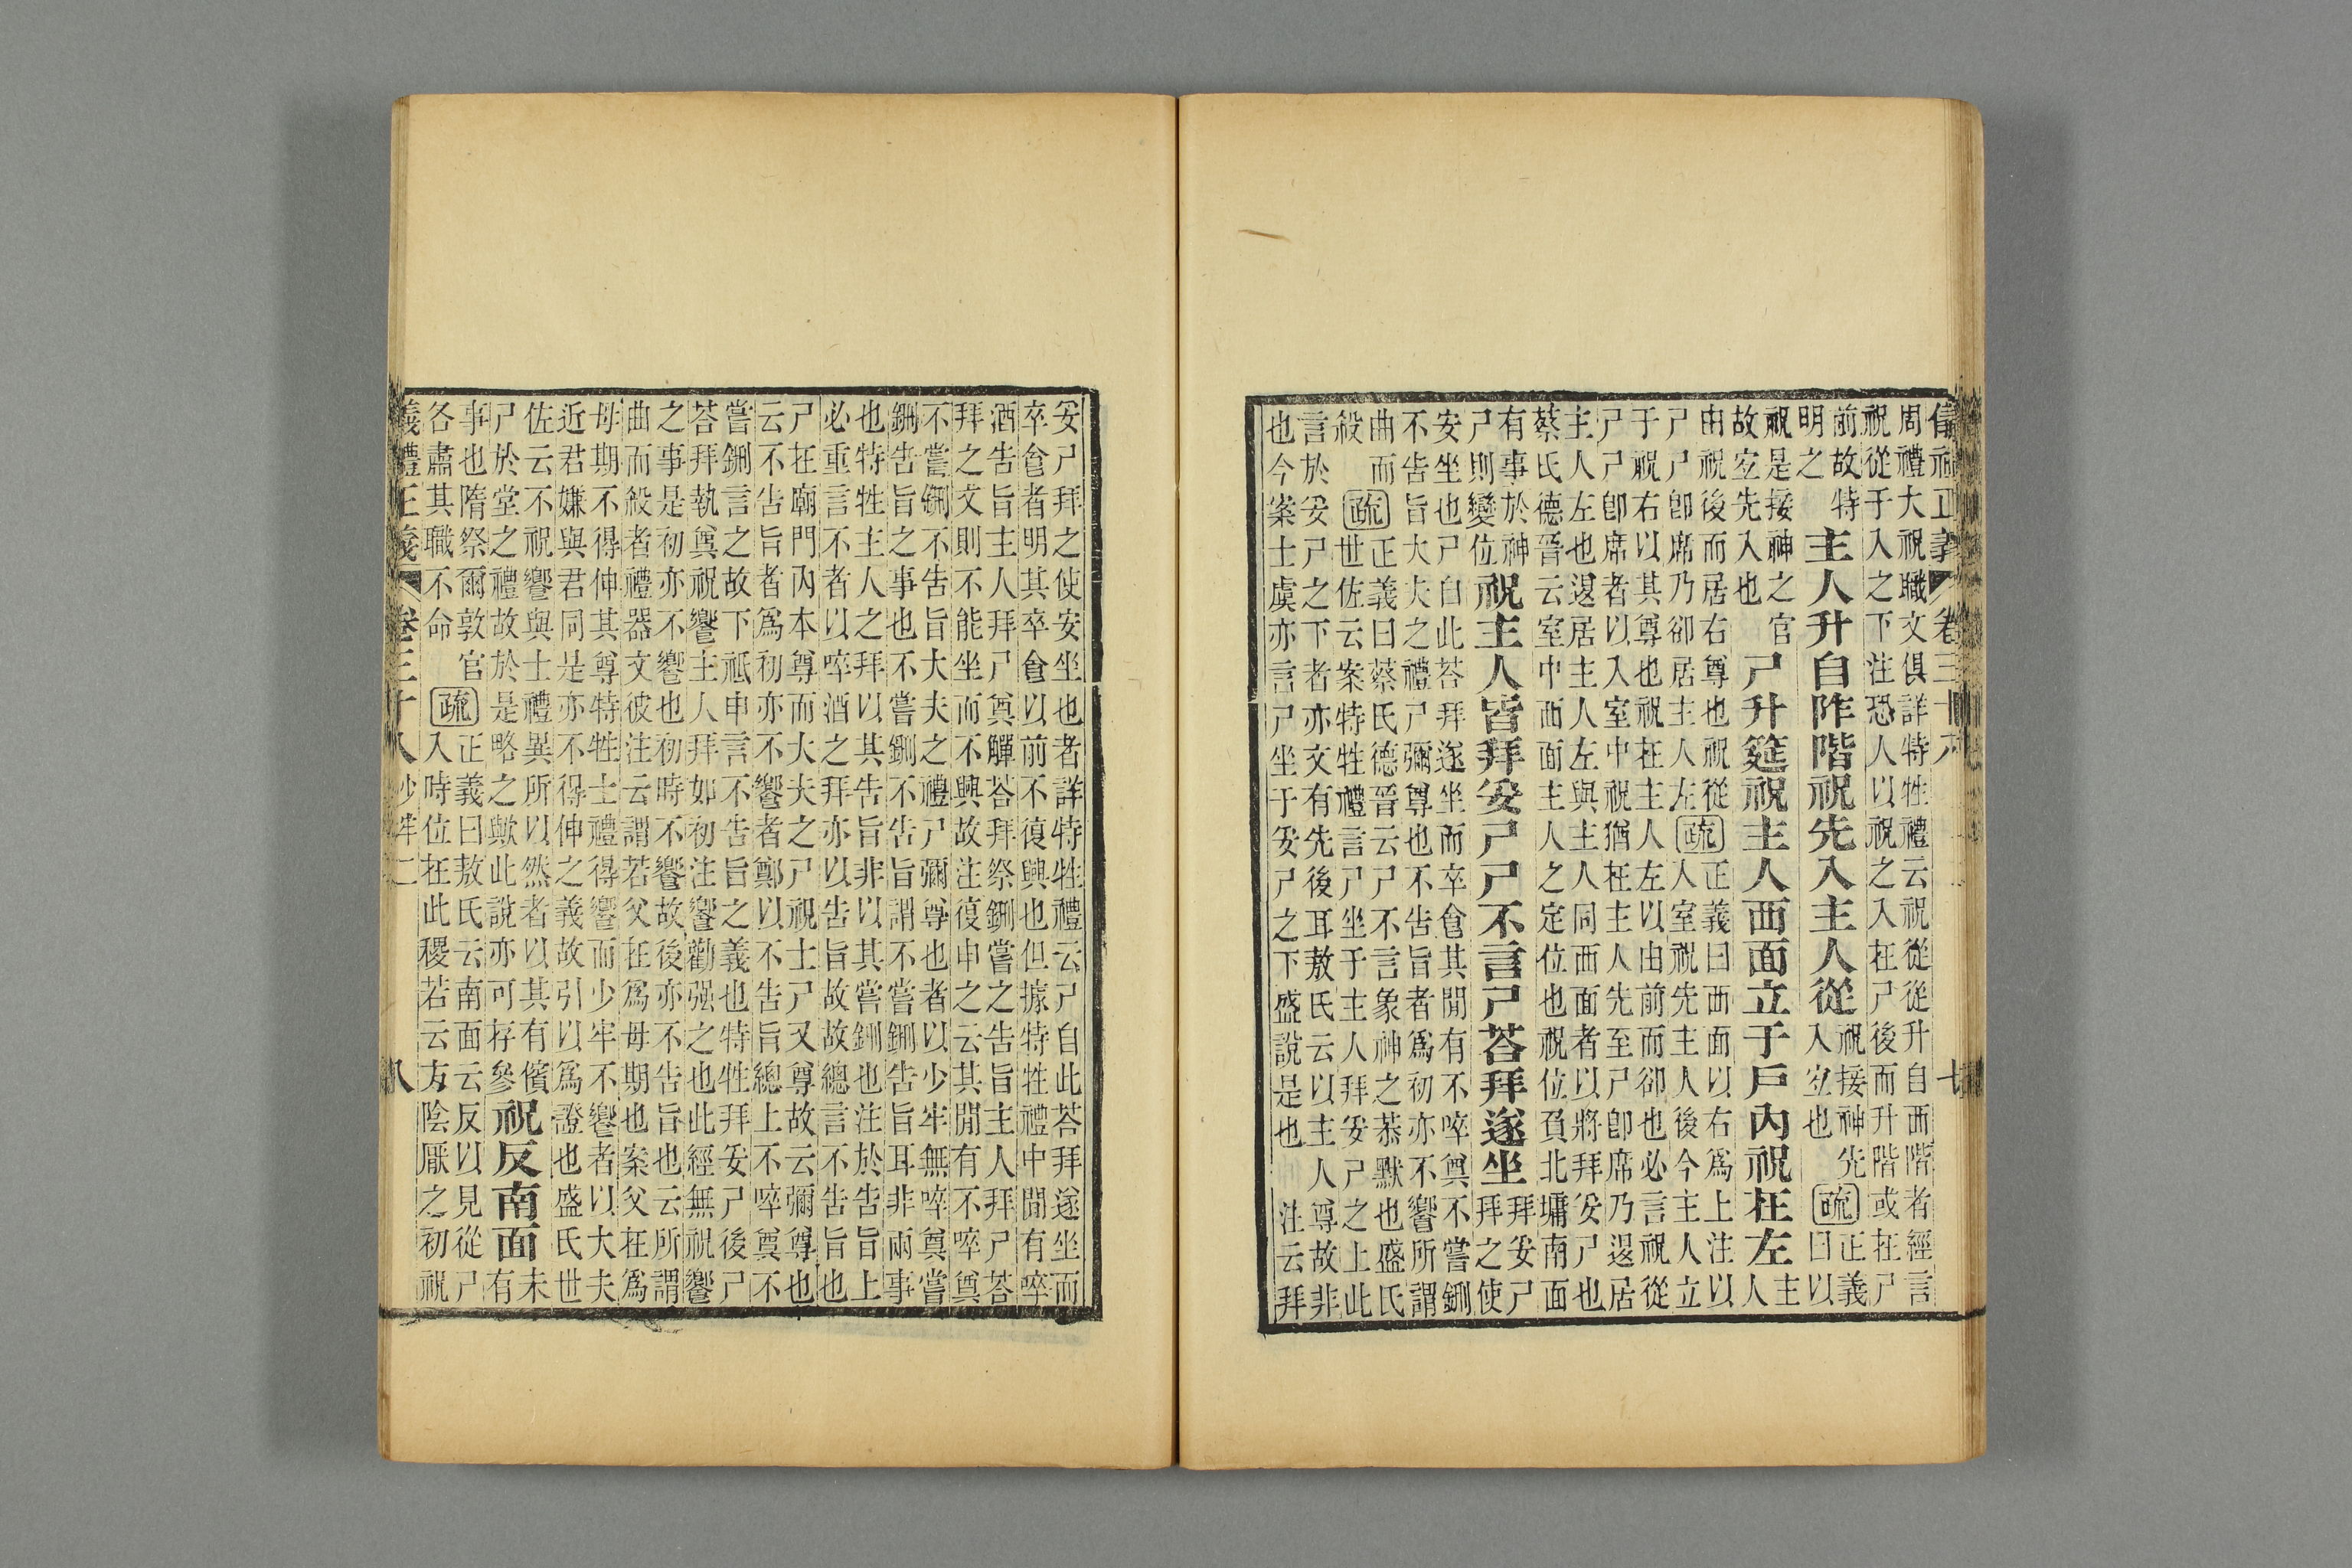 卷三十八 七
周禮大祝職文俱詳特牲禮云祝從從升自西階者經言
祝從于入之下注恐人以祝之入在尸後而升階或在尸
前故特
明之
主人升自阼階祝先入主人從
祝接神先
入室也
疏
正義
曰以
祝是接神之官
故宜先入也
尸升筵祝主人西面立于戶內祝在左
主
人
由祝後而居右尊也祝從
尸尸卽席乃卻居主人左
疏
正義曰西面以右爲上注以
入室祝先主人後今主人立
于祝右以其尊也祝在主人左以由前而卻也必言祝從
尸尸卽席者以入室中祝猶在主人先至尸卽席乃還居
主人左也還居主人左與主人同西面者以將拜妥尸也
蔡氏德晉云室中西面主人之定位也祝位負北墉南面
有事於神
尸則變位
祝主人皆拜妥尸尸不言尸荅拜遂坐
拜妥尸
拜之使
安坐也尸自此荅拜遂坐而卒食其閒有不啐奠不嘗鉶
不告旨大夫之禮尸彌尊也不告旨者爲初亦不饗所謂
曲而
殺
疏
正義曰蔡氏德晉云尸不言象神之恭默也盛氏
世佐云案特牲禮言尸坐于主人拜妥尸之上此
言於妥尸之下者亦文有先後耳敖氏云以主人尊故非
也今案士虞亦言尸坐于妥尸之下盛說是也 注云拜
妥尸拜之使安坐也者詳特牲禮云尸自此荅拜遂坐而
卒食者明其卒食以前不復興也但據特牲禮中閒有啐
酒告旨主人拜尸奠觶荅拜祭鉶嘗之告旨主人拜尸荅
拜之文則不能坐而不興故注復申之云其閒有不啐奠
不嘗鉶不告旨大夫之禮尸彌尊也者以少牢無啐奠嘗
鉶告旨之事也不嘗鉶不告旨謂不嘗鉶告旨耳非兩事
也特牲主人之拜以其告旨非以其嘗鉶也注於告旨上
必重言不者以啐酒之拜亦以告旨故故總言不告旨也
尸在廟門內本尊而大夫之尸視士尸又尊故云彌尊也
云不告旨者爲初亦不饗者鄭以不告旨總上不啐奠不
嘗鉶言之故下祗申言不告旨之義也特牲拜妥尸後尸
荅拜執奠祝饗主人拜如初注饗勸强之也此經無祝饗
之事是初亦不饗也初時不饗故後亦不告旨也云所謂
曲而殺者禮器文彼注云謂若父在爲母期也案父在爲
母期不得伸其尊特牲士禮得饗而少牢不饗者以大夫
近君嫌與君同是亦不得伸之義故引以爲證也盛氏世
佐云不祝饗與士禮異所以然者以其有儐
尸於堂之禮故於是略之歟此說亦可存參
祝反南面
未
有
事也隋祭爾敦官
各肅其職不命
疏
正義曰敖氏云南面云反以見從尸
入時位在此稷若云方陰厭之初祝
義禮正義 卷三十八 少牢二 八